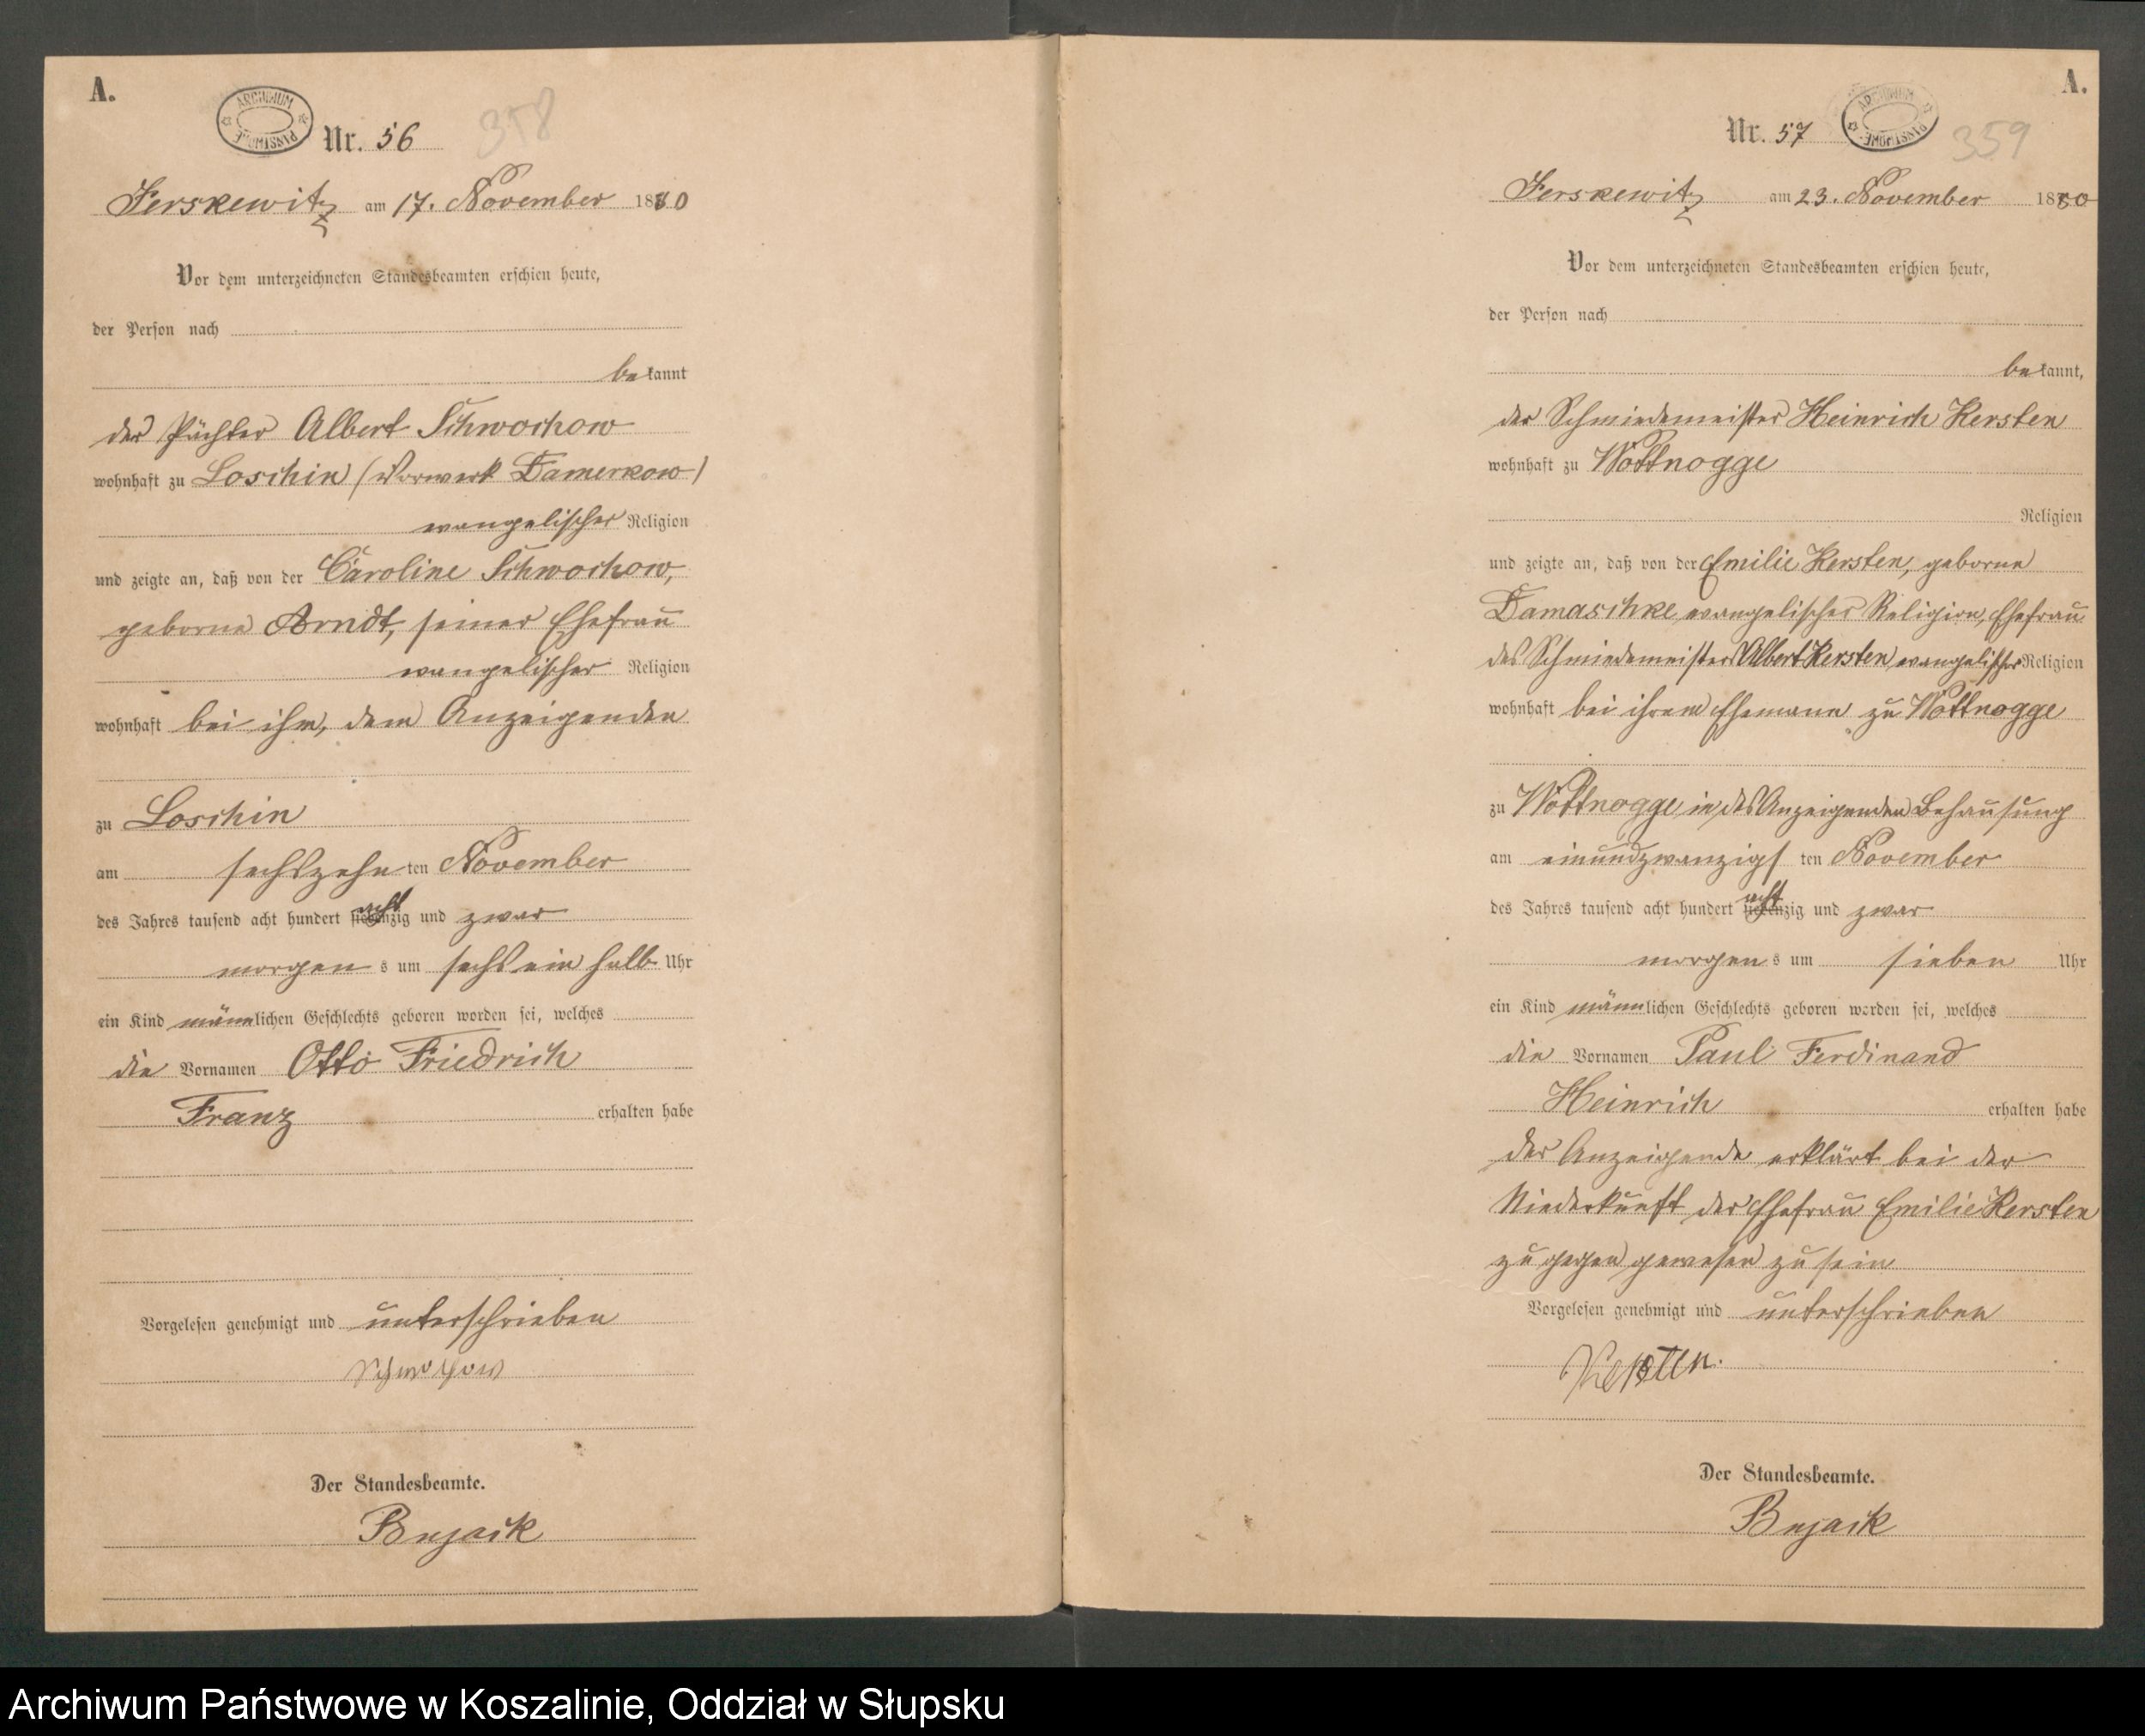 A.
ARCHIWUM PAŃSTWOWE
Nr. 56
358
Jerskewitz am 17. November 1880
Vor dem unterzeichneten Standesbeamten erschien heute,
der Person nach
bekannt
der Pächter Albert Schwochow
wohnhaft zu Loschin (Vorwerk Damerkow)
evangelischer Religion
und zeigte an, daß von der Caroline Schwochow,
geborne Arndt, seiner Ehefrau
evangelischer Religion
wohnhaft bei ihm, dem Anzeigenden
zu Loschin
am sechszehnten November
des Jahres tausend acht hundert achtzig und zwar
morgens um sechs ein halb Uhr
ein Kind männlichen Geschlechts geboren worden sei, welches
die Vornamen Otto Friedrich
Franz erhalten habe
Vorgelesen genehmigt und unterschrieben
Schwochow
Der Standesbeamte.
A.
Nr. 57
ARCHIWUM PAŃSTWOWE
359
Jerskewitz am 23. November 1880
Vor dem unterzeichneten Standesbeamten erschien heute,
der Person nach
bekannt,
der Schmiedemeister Heinrich Kersten
wohnhaft zu Wottnogge
Religion
und zeigte an, daß von der Emilie Kersten, geborne
Damaschke, evangelischer Religion, Ehefrau
des Schmiedemeisters Albert Kersten evangelischer Religion
wohnhaft bei ihrem Ehemann zu Wottnogge
zu Wottnogge in des Anzeigenden Behausung
am einundzwanzigsten November
des Jahres tausend acht hundert achtzig und zwar
morgens um sieben Uhr
ein Kind männlichen Geschlechts geboren worden sei, welches
die Vornamen Paul Ferdinand
Heinrich erhalten habe
der Anzeigende erklärt bei der
Niederkunft der Ehefrau Emilie Kersten
zugegen gewesen zu sein
Vorgelesen genehmigt und unterschrieben
Kersten.
Der Standesbeamte.
Archiwum Państwowe w Koszalinie, Oddział w Słupsku